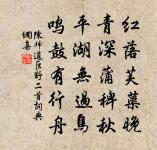 紅落芙蕖晚
青深蒲稗秋
平湖無過鳥
鳴鼓有行舟
陳師道巨野二首詞典
網書